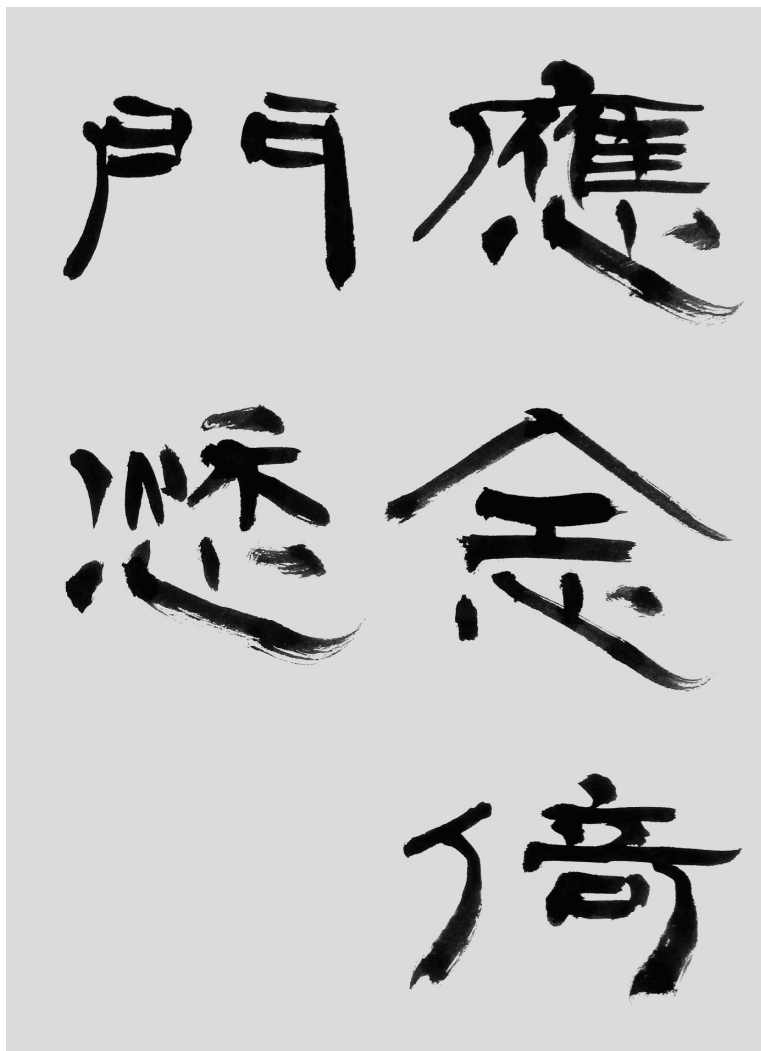 應念倚
門愁